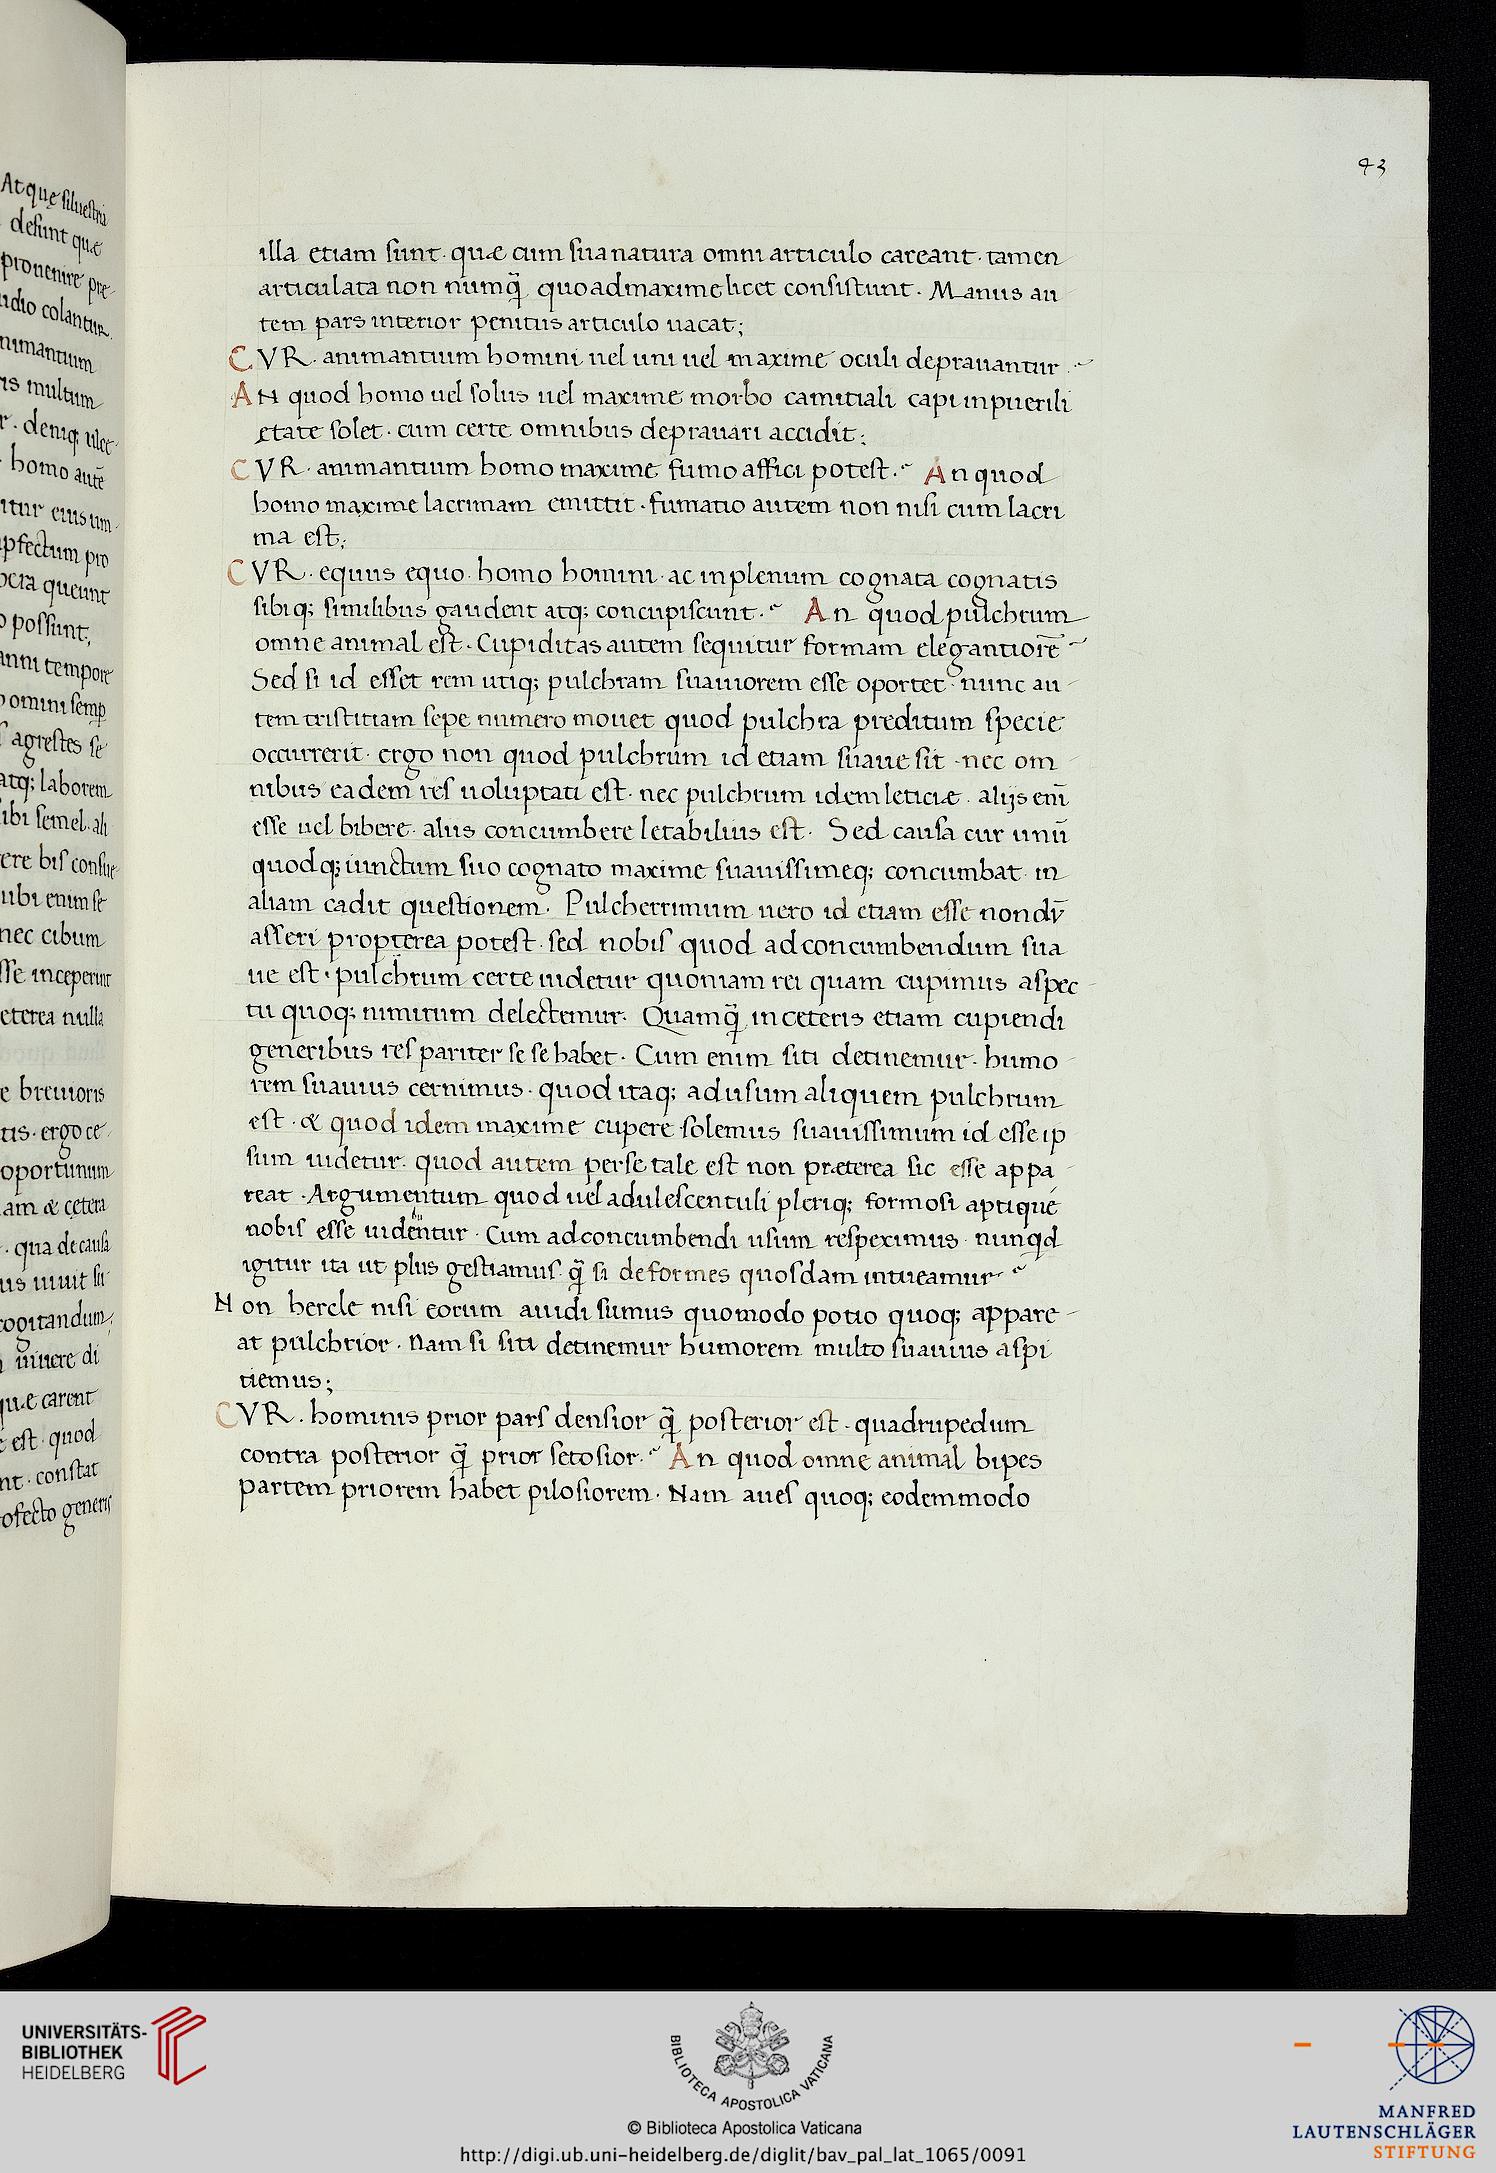 43
illa etiam sunt · quæ cum sua natura omni articulo careant · tamen
articulata non numq̃ quoad maxime licet consistunt · Manus au
tem pars interior penitus articulo uacat;
CVR · animantium homini uel uni uel maxime oculi deprauantur
AN quod homo uel solus uel maxime morbo comitiali capi in puerili
ętate solet · cum certe omnibus deprauari accidit;
CVR · animantium homo maxime fumo affici potest · An quod
homo maxime lacrimam emittit · fumatio autem non nisi cum lacri
ma est;
CVR · equus equo · homo homini · ac in plenum cognata cognatis
sibiq; similibus gaudent atq; concupiscunt · An quod pulchrum
omne animal est · Cupiditas autem sequitur formam elegantiorē
Sed si id esset rem utiq; pulchram suauiorem esse oportet · nunc au
tem tristitiam sepe numero mouet quod pulchra preditum specie
occurrerit · ergo non quod pulchrum id etiam suaue sit · nec om
nibus eadem res uoluptati est · nec pulchrum idem leticiæ · alijs eni̅
esse uel bibere · alus concumbere letabilius est · Sed causa cur unū
quodq; iunctum suo cognato maxime suauissimeq; concumbat · in
aliam cadit questionem · Pulcherrimum uero id etiam esse nondū
asseri propterea potest · sed nobis quod ad concumbendum sua
ue est · pulchrum certe uidetur quoniam rei quam cupimus aspec
tu quoq; nimirum delectemur · Quamq̃ in ceteris etiam cupiendi
generibus res pariter se se habet · Cum enim siti detinemur · humo
rem suauius cernimus · quod itaq; ad usum aliquem pulchrum
est · & quod idem maxime cupere solemus suauissimum id esse ip
sum uidetur · quod autem per se tale est non præterea sic esse appa
reat · Argumentum quod uel adulescentuli pleriq; formosi aptique
nobis esse uidentur · Cum ad concumbendi usum respeximus · nunqd
igitur ita ut plus gestiamus · q̃ si deformes quosdam intueamur
Non hercle nisi eorum auidi sumus quomodo potio quoq; appare
at pulchrior · Nam si siti detinemur humorem multo suauius aspi
tiemus;
CVR · hominis prior pars densior q̃ posterior est · quadrupedum
contra posterior q̃ prior setosior · An quod omne animal bipes
partem priorem habet pilosiorem · Nam aues quoq; eodemmodo
Atquę siluestria
desunt quæ
prouenire pre
udio colantur
nimantium
multum
deniq; ulce
homo autē
itur eius um
pfectum pro
queunt
possunt;
anni tempore
homini semp̱
agrestes se
atq; laborem
ibi semel · ali
ere bis consue
ubi enim se
nec cibum
sse inceperint
eterea nulla
e breuioris
tis · ergo ce
oportunum
am & cętera
qua de causa
us uiuit su
cogitandum;
uiuere di
quæ carent
est quod
nt · constat
ofecto generis
UNIVERSITÄTS-
BIBLIOTHEK
HEIDELBERG
BIBLIOTECA APOSTOLICA VATICANA
© Biblioteca Apostolica Vaticana
http://digi.ub.uni-heidelberg.de/diglit/bav_pal_lat_1065/0091
MANFRED
LAUTENSCHLÄGER
STIFTUNG